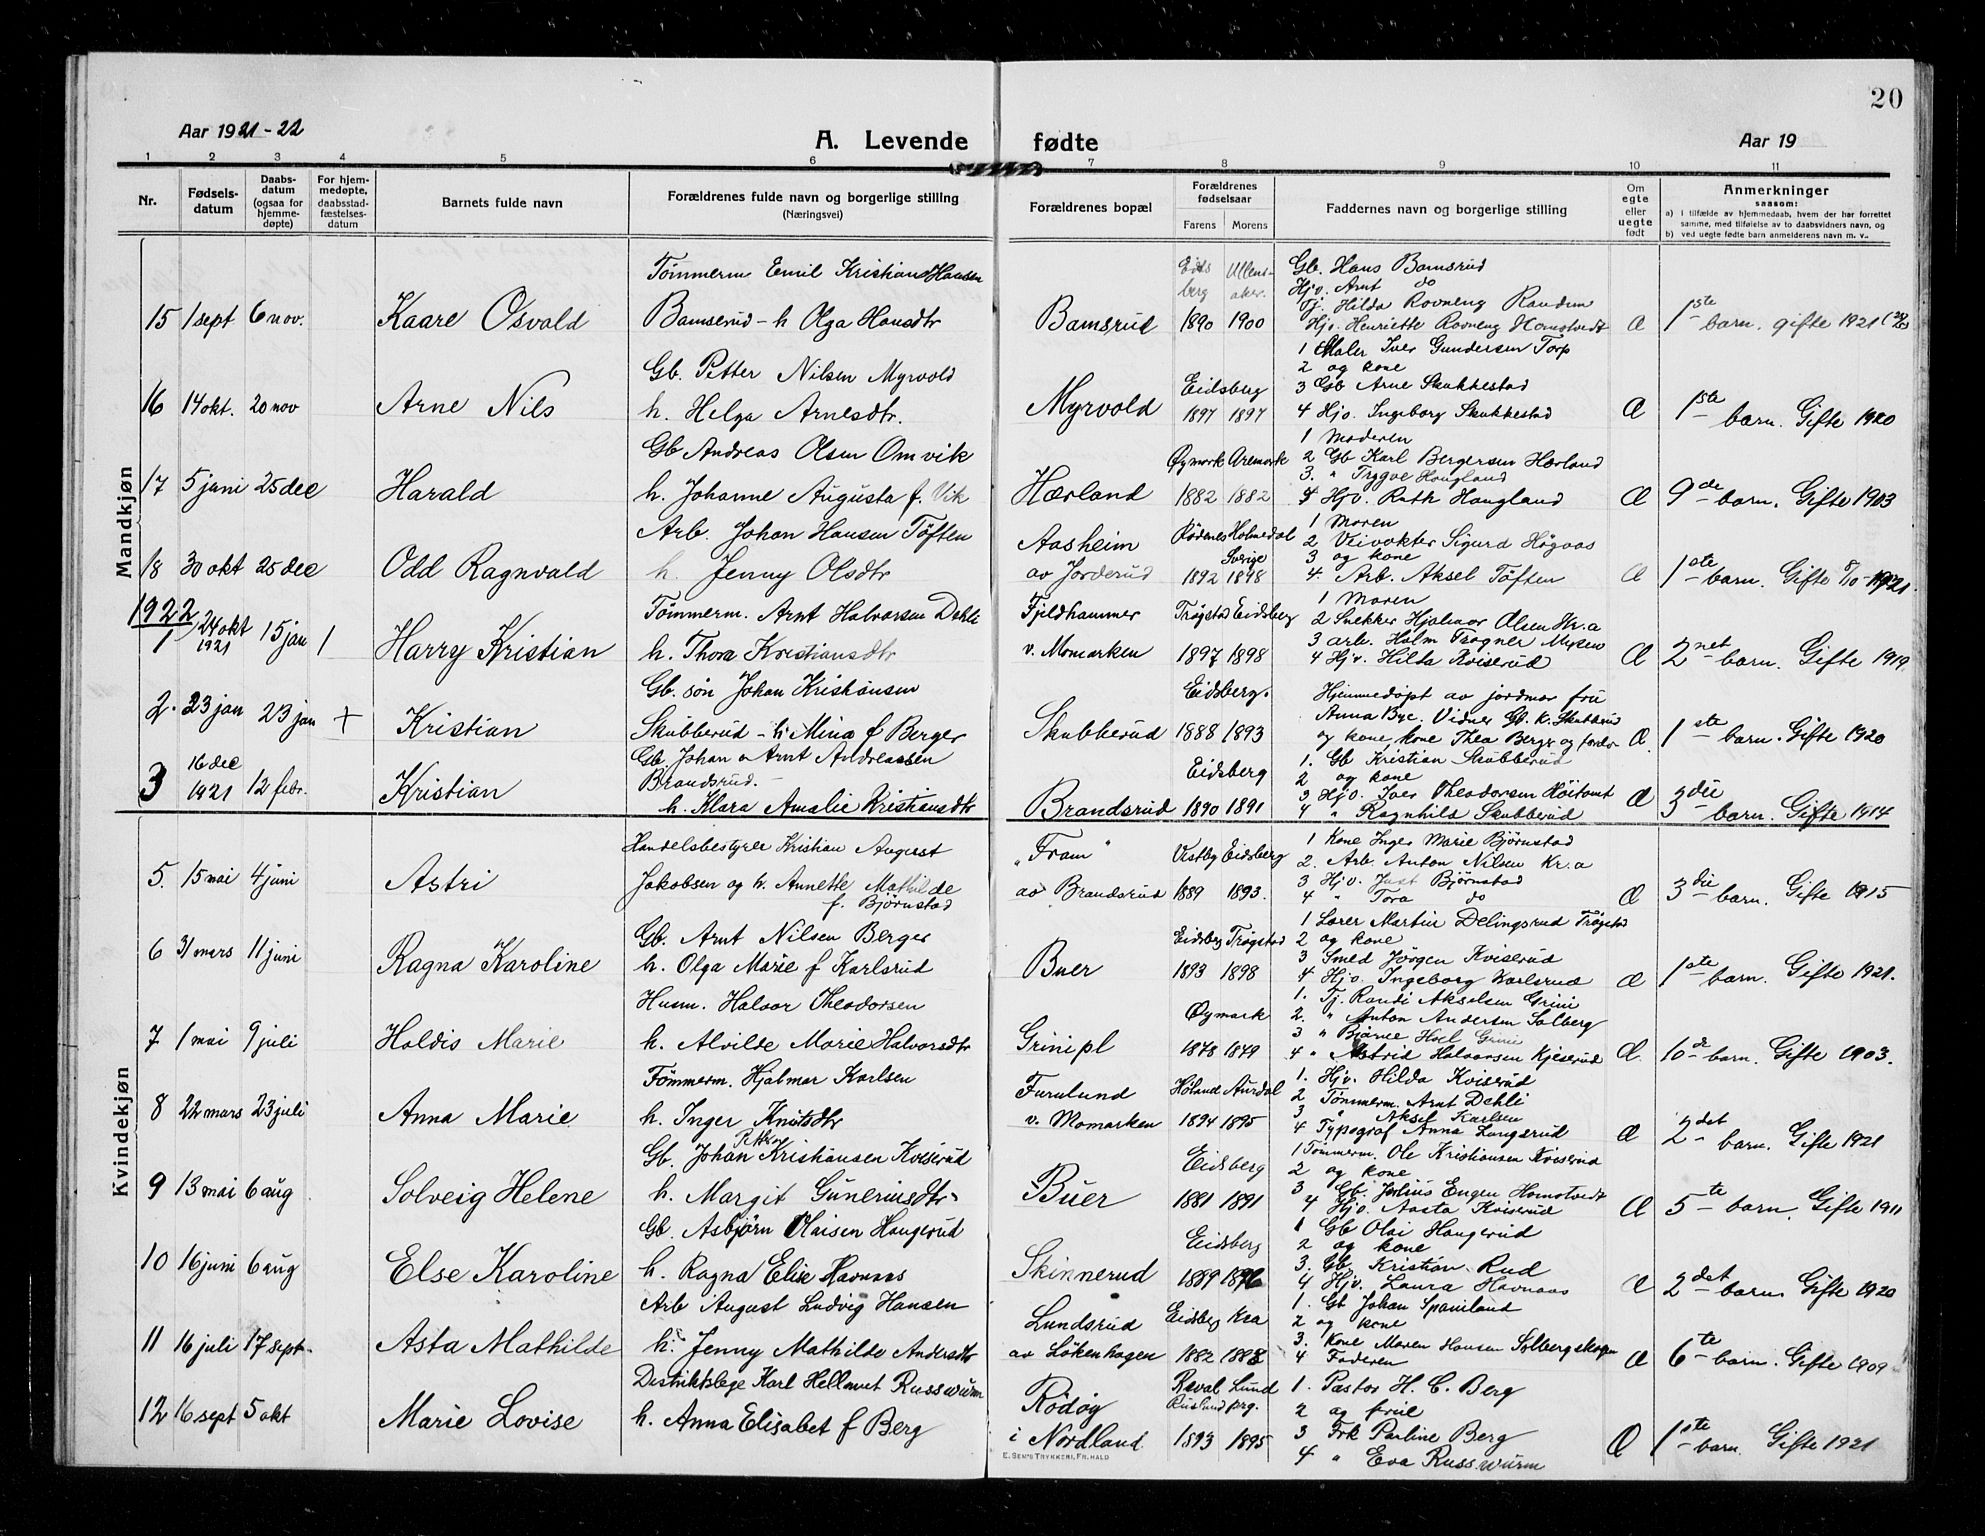 20
Aar 1921-22
A. Levende fødte
Aar 19
1 2 3 4 5 6 7 8 9 10 11
Nr.
Fødsels-
datum
Daabs-
datum
(ogsaa for
hjemme-
døpte)
For hjem-
medøpte,
daabsstad-
fæstelses-
datum
Barnets fulde navn
Forældrenes fulde navn og borgerlige stilling
(Næringsvei)
Forældrenes bopæl
Forældrenes
fødselsaar
Farens Morens
Faddernes navn og borgerlige stilling
Om
egte
eller
uegte
født
Anmerkninger
saasom:
a) i tilfælde av hjemmedaab, hvem der har forrettet
samme, med tilføielse av to daabsvidners navn, og
b) ved uegte fødte barn anmelderens navn m. v..
Mandkjøn
15 1 sept 6 nov. Kaare Osvald
Tømmerm Emil Kristian Hansen
Bamserud - h Olga Hansdtr
Bamsrud
Eids Ullens-
berg aker.
1890 1900
Gb. Hans Bamsrud
Hjv. Arnt do
Tj. Hilda Rovneng Randem
Hjv. Henriette Rovneng Homstvedt
Æ 1ste barn. gifte 1921
16 14 okt. 20 nov Arne Nils
Gb. Petter Nilsen Myrvold
h. Helga Arnesdtr.
Myrvold
Eidsberg
1897 1897
1 Maler Iver Gundersen Torp
2 og kone
3 Gb Arne Skukkestad
4 Hjv. Ingeborg Skukkestad
Æ 1ste barn. Gifte 1920
17 5 juni 25 dec Harald
Gb Andreas Olsen Omvik
h. Johanne Augusta f. Vik
Hærland
Øymark Aremark
1882 1882
1 Moderen
2 Gb Karl Bergersen Hærland
3. " Trygve Haugland
4 Hjv. Ruth Haugland
Æ 9de barn. Gifte 1903
18 30 okt 25 dec Odd Ragnvald
Arb. Johan Hansen Töften
h. Jenny Olsdtr
Aasheim
av Jorderud
Rödenes Holmedal
Sverige
1892 1898
1 Moren
2 Veivokter Sigurd Högaas
3 og kone
4. Arb. Aksel Töften
Æ 1ste barn. Gifte 8/10-1921.
1922
1 24 okt 1921 15 jan 1 Harry Kristian
Tömmerm. Arnt Halvorsen Dehli
h. Thora Kristiansdtr
Fjeldhammer
v. Momarken
Trøgstad Eidsberg
1897 1898
1 Moren
2 Snekker Hjalmar Olsen Kr.a
3 arb. Holm Trogner Mysen
4 Hjv. Hilda Kviserud
Æ 2net barn. Gifte 1919
2. 23 jan 23 jan + Kristian
Gb. sön Johan Kristiansen
Skubberud - h. Mina f Berger
Skubberud
Eidsberg.
1888 1893
Hjemmedøpt av jordmor fru
Anna Bye. Vidner Gb. K. Skubberud
og kone, kone Thea Berger og foreldr
Æ. 1ste barn. Gifte 1920
3 16 dec 1921 12 febr. Kristian
Gb. Johan Arnt Andreassen
Brandsrud.-
h. Klara Amalie Kristiansdtr
Brandsrud
Eidsberg
1890 1891
1. Gb Kristian Skubberud
2 og kone
3 Hjv. Iver Theodorsen Höitomt
4 " Ragnhild Skubberud
Æ 3die barn. Gifte 1914
Kvindekjøn
5. 15 mai 4 juni Astri
Handelsbestyrer Kristian August
Jakobsen og h. Annette Mathilde
f. Bjørnstad
"Fram"
av Brandsrud
Vestby Eidsberg
1889 1893.
1 Kone Inger Marie Bjørnstad
2. Arb. Anton Nilsen Kr.a
3 Hjv. Just Bjørnstad
4 " Tora do
Æ 3die barn. Gifte 1915
6 31 mars 11 juni Ragna Karoline
Gb. Arnt Nilsen Berger
h. Olga Marie f Karlsrud
Buer
Eidsberg Trøgstad
1893 1898
1 Lærer Martin Delingsrud Trøgstad
2 og kone
3 Smed Jørgen Kviserud
4 Hjv. Ingeborg Karlsrud
Æ 1ste barn. Gifte 1921.
7 1 mai 9 juli Haldis Marie
Husm. Halvor Theodorsen
h. Alvilde Marie Halvorsdtr
Grini pl
Øymark
1878 1879
1. Tj. Randi Akselsen Grini
2. " Anton Andersen Solberg
3 " Bjarne Hoel Grini
4 " Astrid Halvorsen Kjeserud
Æ. 10de barn. Gifte 1903.
8 22 mars 23 juli Anna Marie
Tømmerm. Hjalmar Karlsen
h. Inger Knutsdtr
Furulund
v. Momarken
Høland Aurdal
1894 1895
1. Hjv. Hilda Kviserud
2 Tømmerm. Arnt Dehli
3 " Aksel Karlsen
4 Typograf Anna Langsrud
Æ 2det barn. Gifte 1921
9 13 mai 6 aug Solveig Helene
Petter
Gb. Johan Kristiansen Kviserud
h. Margit Guneriusdtr.
Buer
Eidsberg
1881 1891
1 Tømmerm. Ole Kristiansen Kviserud
2 og kone
3 Gb. Julius Engen Homstvedt
4 Hjv. Aasta Kviserud
Æ 5te barn. Gifte 1911
10 16 juni 6 aug Else Karoline
Gb. Asbjørn Olaisen Haugerud
h. Ragna Elise Havnaas
Skinnerud
Eidsberg
1889 1896
1 Gb Olai Haugerud
2 og kone
3. Gb Kristian Rud
4 Hjv. Laura Havnaas
Æ 2det barn. Gifte 1920
11 16 juli 17 sept. Asta Mathilde
Arb August Ludvig Hansen
h. Jenny Mathilde Andersdtr
Lundsrud
av Løkenhagen
Eidsberg Kra
1882 1888
1. Gb Johan Spamland
2 og kone
3. Kone Maren Hansen Solbergskogen
4 Faderen
Æ 6te barn. Gifte 1909
12 16 sept 5 okt Marie Lovise
Distriktslege Karl Hellmut Russwurm
h. Anna Elisabet f Berg
Rödöy
i Nordland
Reval Lund
Rusland prg.
1893 1895
1. Pastor H. C. Berg
2 og frue
3 Frk Pauline Berg
4 " Eva Russwurm
Æ 1ste barn. Gifte 1921
E. SEM'S TRYKKERI, FR.HALD